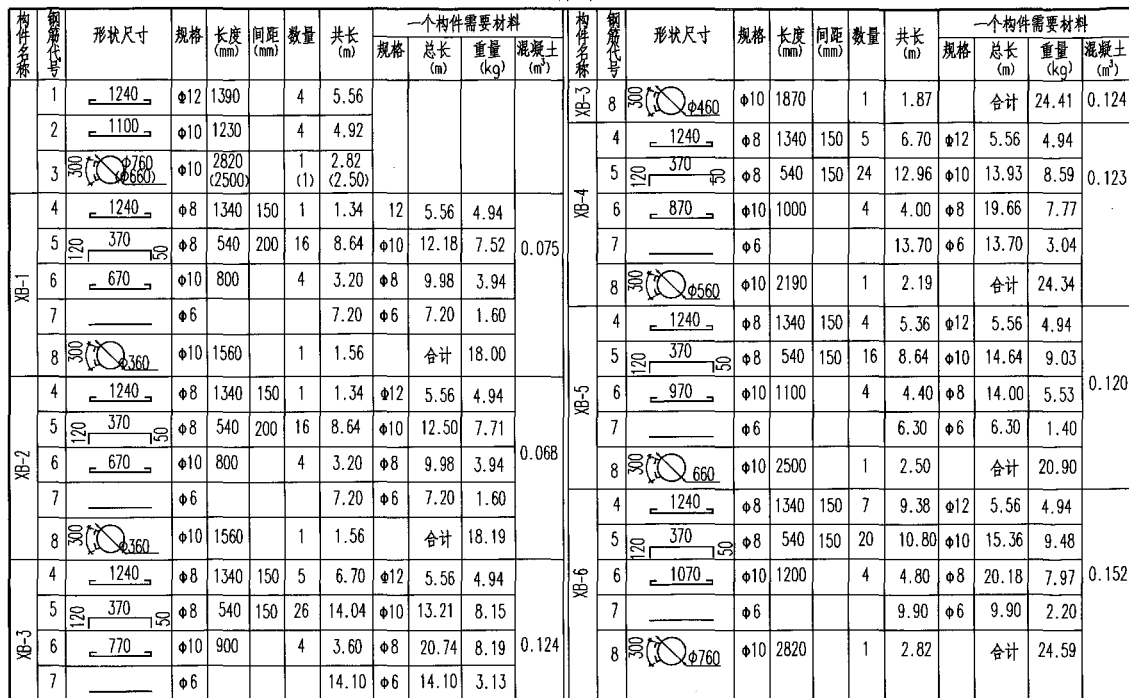 构件名称 钢筋代号 形状尺寸 规格 长度(mm) 间距(mm) 数量 共长(m) 一个构件需要材料
规格 总长(m) 重量(kg) 混凝土(m³)
1 1240 φ12 1390 4 5.56
2 1100 φ10 1230 4 4.92
3 300 φ760 (φ660) φ10 2820 (2500) 1 (1) 2.82 (2.50)
XB-1
4 1240 φ8 1340 150 1 1.34 12 5.56 4.94
5 120 370 50 φ8 540 200 16 8.64 φ10 12.18 7.52 0.075
6 670 φ10 800 4 3.20 φ8 9.98 3.94
7 φ6 7.20 φ6 7.20 1.60
8 300 φ360 φ10 1560 1 1.56 合计 18.00
XB-2
4 1240 φ8 1340 150 1 1.34 φ12 5.56 4.94
5 120 370 50 φ8 540 200 16 8.64 φ10 12.50 7.71 0.068
6 670 φ10 800 4 3.20 φ8 9.98 3.94
7 φ6 7.20 φ6 7.20 1.60
8 300 φ360 φ10 1560 1 1.56 合计 18.19
XB-3
4 1240 φ8 1340 150 5 6.70 φ12 5.56 4.94
5 120 370 50 φ8 540 150 26 14.04 φ10 13.21 8.15
6 770 φ10 900 4 3.60 φ8 20.74 8.19 0.124
7 φ6 14.10 φ6 14.10 3.13
构件名称 钢筋代号 形状尺寸 规格 长度(mm) 间距(mm) 数量 共长(m) 一个构件需要材料
规格 总长(m) 重量(kg) 混凝土(m³)
XB-3 8 300 φ460 φ10 1870 1 1.87 合计 24.41 0.124
XB-4
4 1240 φ8 1340 150 5 6.70 φ12 5.56 4.94
5 120 370 50 φ8 540 150 24 12.96 φ10 13.93 8.59 0.123
6 870 φ10 1000 4 4.00 φ8 19.66 7.77
7 φ6 13.70 φ6 13.70 3.04
8 300 φ560 φ10 2190 1 2.19 合计 24.34
XB-5
4 1240 φ8 1340 150 4 5.36 φ12 5.56 4.94
5 120 370 50 φ8 540 150 16 8.64 φ10 14.64 9.03
6 970 φ10 1100 4 4.40 φ8 14.00 5.53 0.120
7 φ6 6.30 φ6 6.30 1.40
8 300 660 φ10 2500 1 2.50 合计 20.90
XB-6
4 1240 φ8 1340 150 7 9.38 φ12 5.56 4.94
5 120 370 50 φ8 540 150 20 10.80 φ10 15.36 9.48
6 1070 φ10 1200 4 4.80 φ8 20.18 7.97 0.152
7 φ6 9.90 φ6 9.90 2.20
8 300 φ760 φ10 2820 1 2.82 合计 24.59